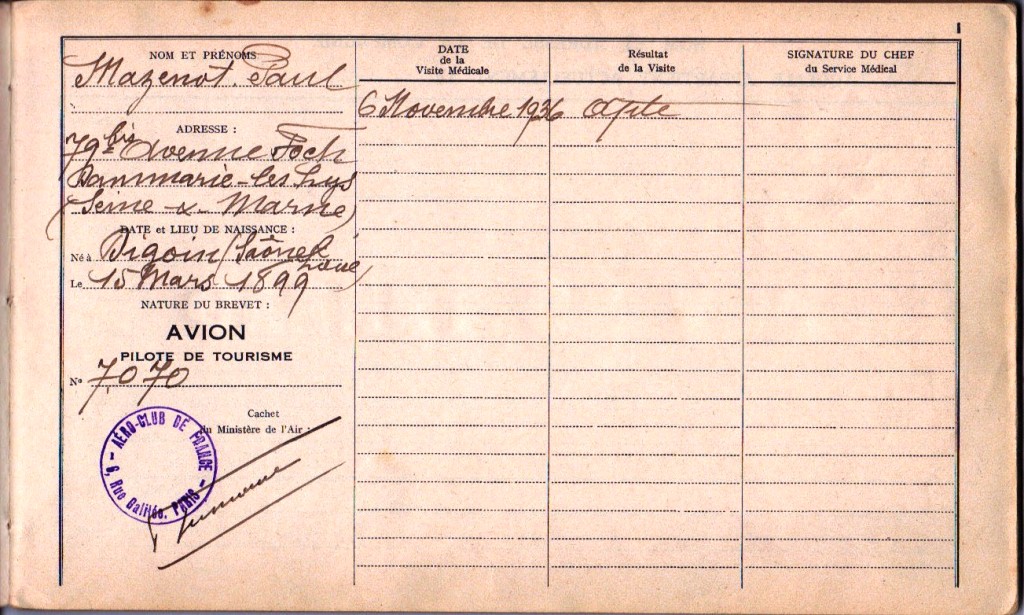 1
NOM ET PRÉNOMS
Mazenot Paul
ADRESSE :
79 bis Avenue Foch
Dammarie-les-Lys
(Seine & Marne)
DATE et LIEU DE NAISSANCE :
Né à Digoin (Saône &
Loire)
Le 15 Mars 1899
NATURE DU BREVET :
AVION
PILOTE DE TOURISME
No 7070
Cachet
du Ministère de l'Air :
– AÉRO-CLUB DE FRANCE –
6, Rue Galilée. PARIS
DATE
de la
Visite Médicale
6 Novembre 1936
Résultat
de la Visite
apte
SIGNATURE DU CHEF
du Service Médical